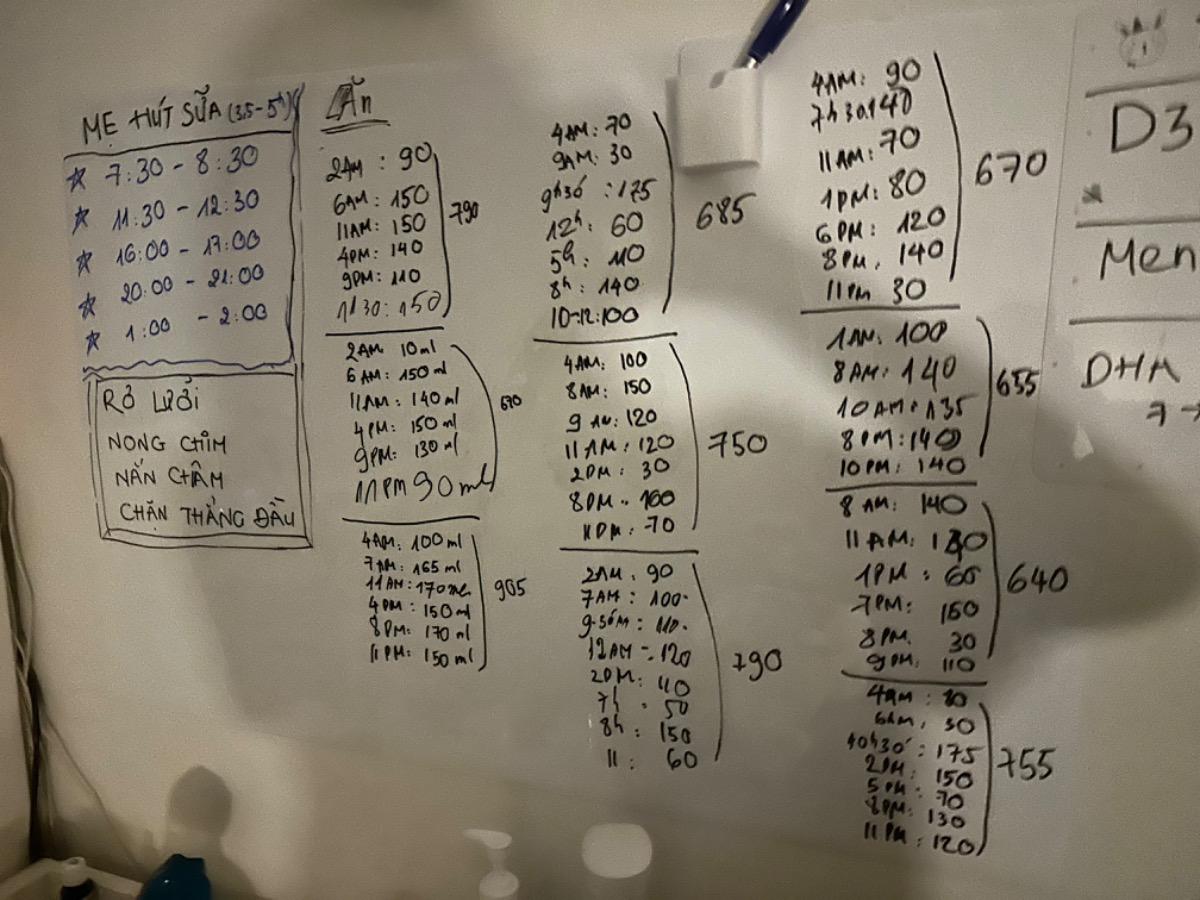 MẸ HÚT SỮA (3,5-5h)
☆ 7:30 - 8:30
☆ 11:30 - 12:30
☆ 16:00 - 17:00
☆ 20:00 - 21:00
☆ 1:00 - 2:00
RƠ LƯỠI
NONG CHIM
NẮN CHÂM
CHĂN THẲNG ĐẦU
Ăn
2AM : 90
6AM : 150
11AM : 150
4PM : 140
9PM : 110
1h30 : 150
790
2AM 10ml
6 AM : 150ml
11AM : 140ml
4PM : 150ml
9PM : 130ml
11PM 90ml
670
4AM: 100ml
7AM: 165ml
11AM: 170ml
4PM: 150ml
8PM: 170ml
11PM: 150ml
905
4AM: 70
9AM: 30
9h30 : 175
12h : 60
5h : 110
8h : 140
10-12:100
685
4AM: 100
8AM: 150
9AM: 120
11AM: 120
2PM : 30
8PM : 160
11PM : 70
750
2AM : 90
7AM : 100
9.30M : 110
12AM : 120
2PM : 110
7h : 50
8h : 150
11 : 60
790
4AM: 90
7h30:140
11AM: 70
1PM: 80
6PM: 120
8PM: 140
11PM 30
670
1AM: 100
8AM: 140
10AM: 135
8PM: 140
10PM: 140
655
8AM: 140
11AM:
1PM : 60
7PM: 150
8PM. 30
9PM: 110
640
4AM : 80
6AM : 30
10h30 : 175
2PM : 150
5PM : 70
8PM: 130
11PM : 120
755
D3
Men
DHA
7 →